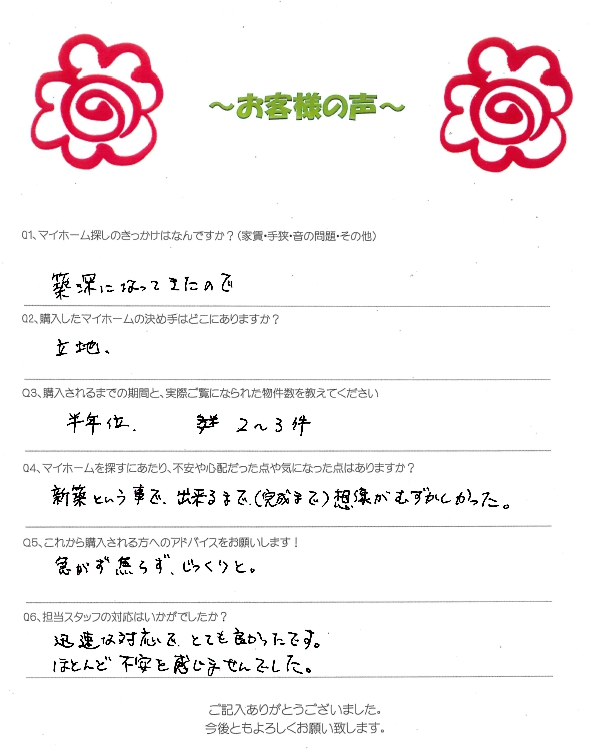 ～お客様の声～
Q1、マイホーム探しのきっかけはなんですか？（家賃・手狭・音の問題・その他）
築深になってきたので
Q2、購入したマイホームの決め手はどこにありますか？
立地、
Q3、購入されるまでの期間と、実際ご覧になられた物件数を教えてください
半年位、 2～3件
Q4、マイホームを探すにあたり、不安や心配だった点や気になった点はありますか？
新築という事で、出来るまで、（完成まで）想像がむずかしかった。
Q5、これから購入される方へのアドバイスをお願いします！
急がず焦らず、じっくりと。
Q6、担当スタッフの対応はいかがでしたか？
迅速な対応で、とても良かったです。
ほとんど不安を感じませんでした。
ご記入ありがとうございました。
今後ともよろしくお願い致します。